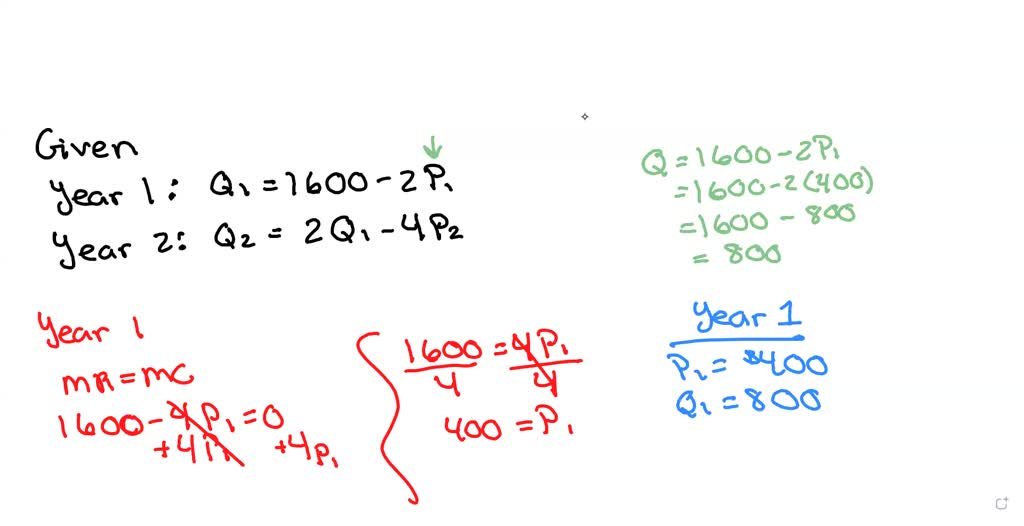 Given
Year 1: Q₁ = 1600 - 2P₁
Year 2: Q₂ = 2Q₁ - 4P₂
Q = 1600 - 2P₁
= 1600 - 2(400)
= 1600 - 800
= 800
Year 1
MR = MC
1600 - 4P₁ = 0
+4P₁ +4P₁
1600 = 4P₁
4 4
400 = P₁
Year 1
P₁ = $400
Q₁ = 800